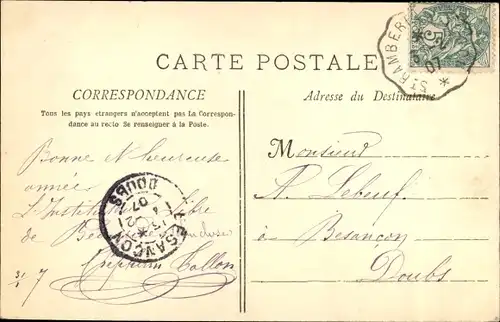 CARTE POSTALE
CORRESPONDANCE
Tous les pays étrangers n'acceptent pas La Correspon-
dance au recto Se renseigner à la Poste.
Adresse du Destinataire
Bonne & heureuse
année
L'Institut libre
de
31/ 7
Monsieur
A. Lebeuf
à Besançon
Doubs
BESANÇON
DOUBS
07
ST RAMBERT
07
5